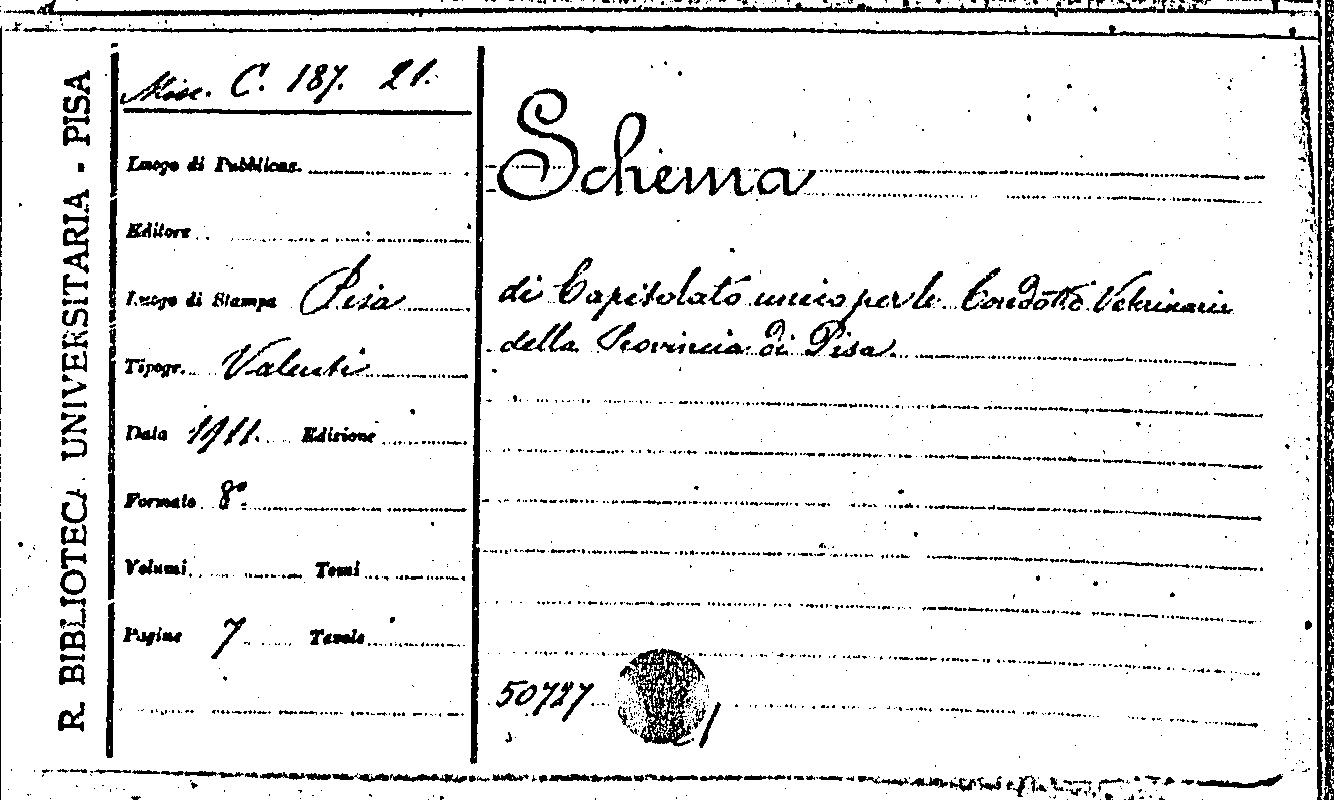 R. BIBLIOTECA UNIVERSITARIA - PISA
Misc. C. 187. 21.
Luogo di Pubblicaz.
Editore
Luogo di Stampa Pisa
Tipogr. Valenti
Data 1911. Edizione
Formato 8º.
Volumi Tomi
Pagine 7 Tavole
Schema
di Capitolato unico per le Condotte Veterinarie
della Provincia di Pisa.
50727